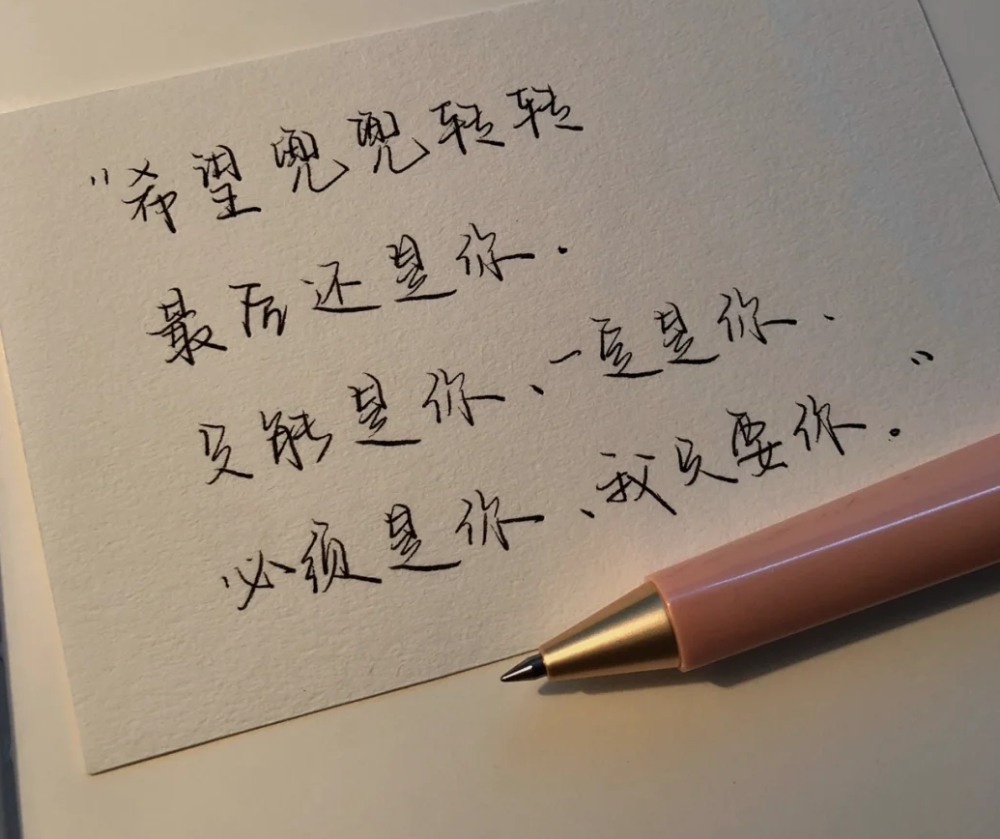 “希望兜兜转转
最后还是你.
只能是你、一定是你.
必须是你、我只要你.”